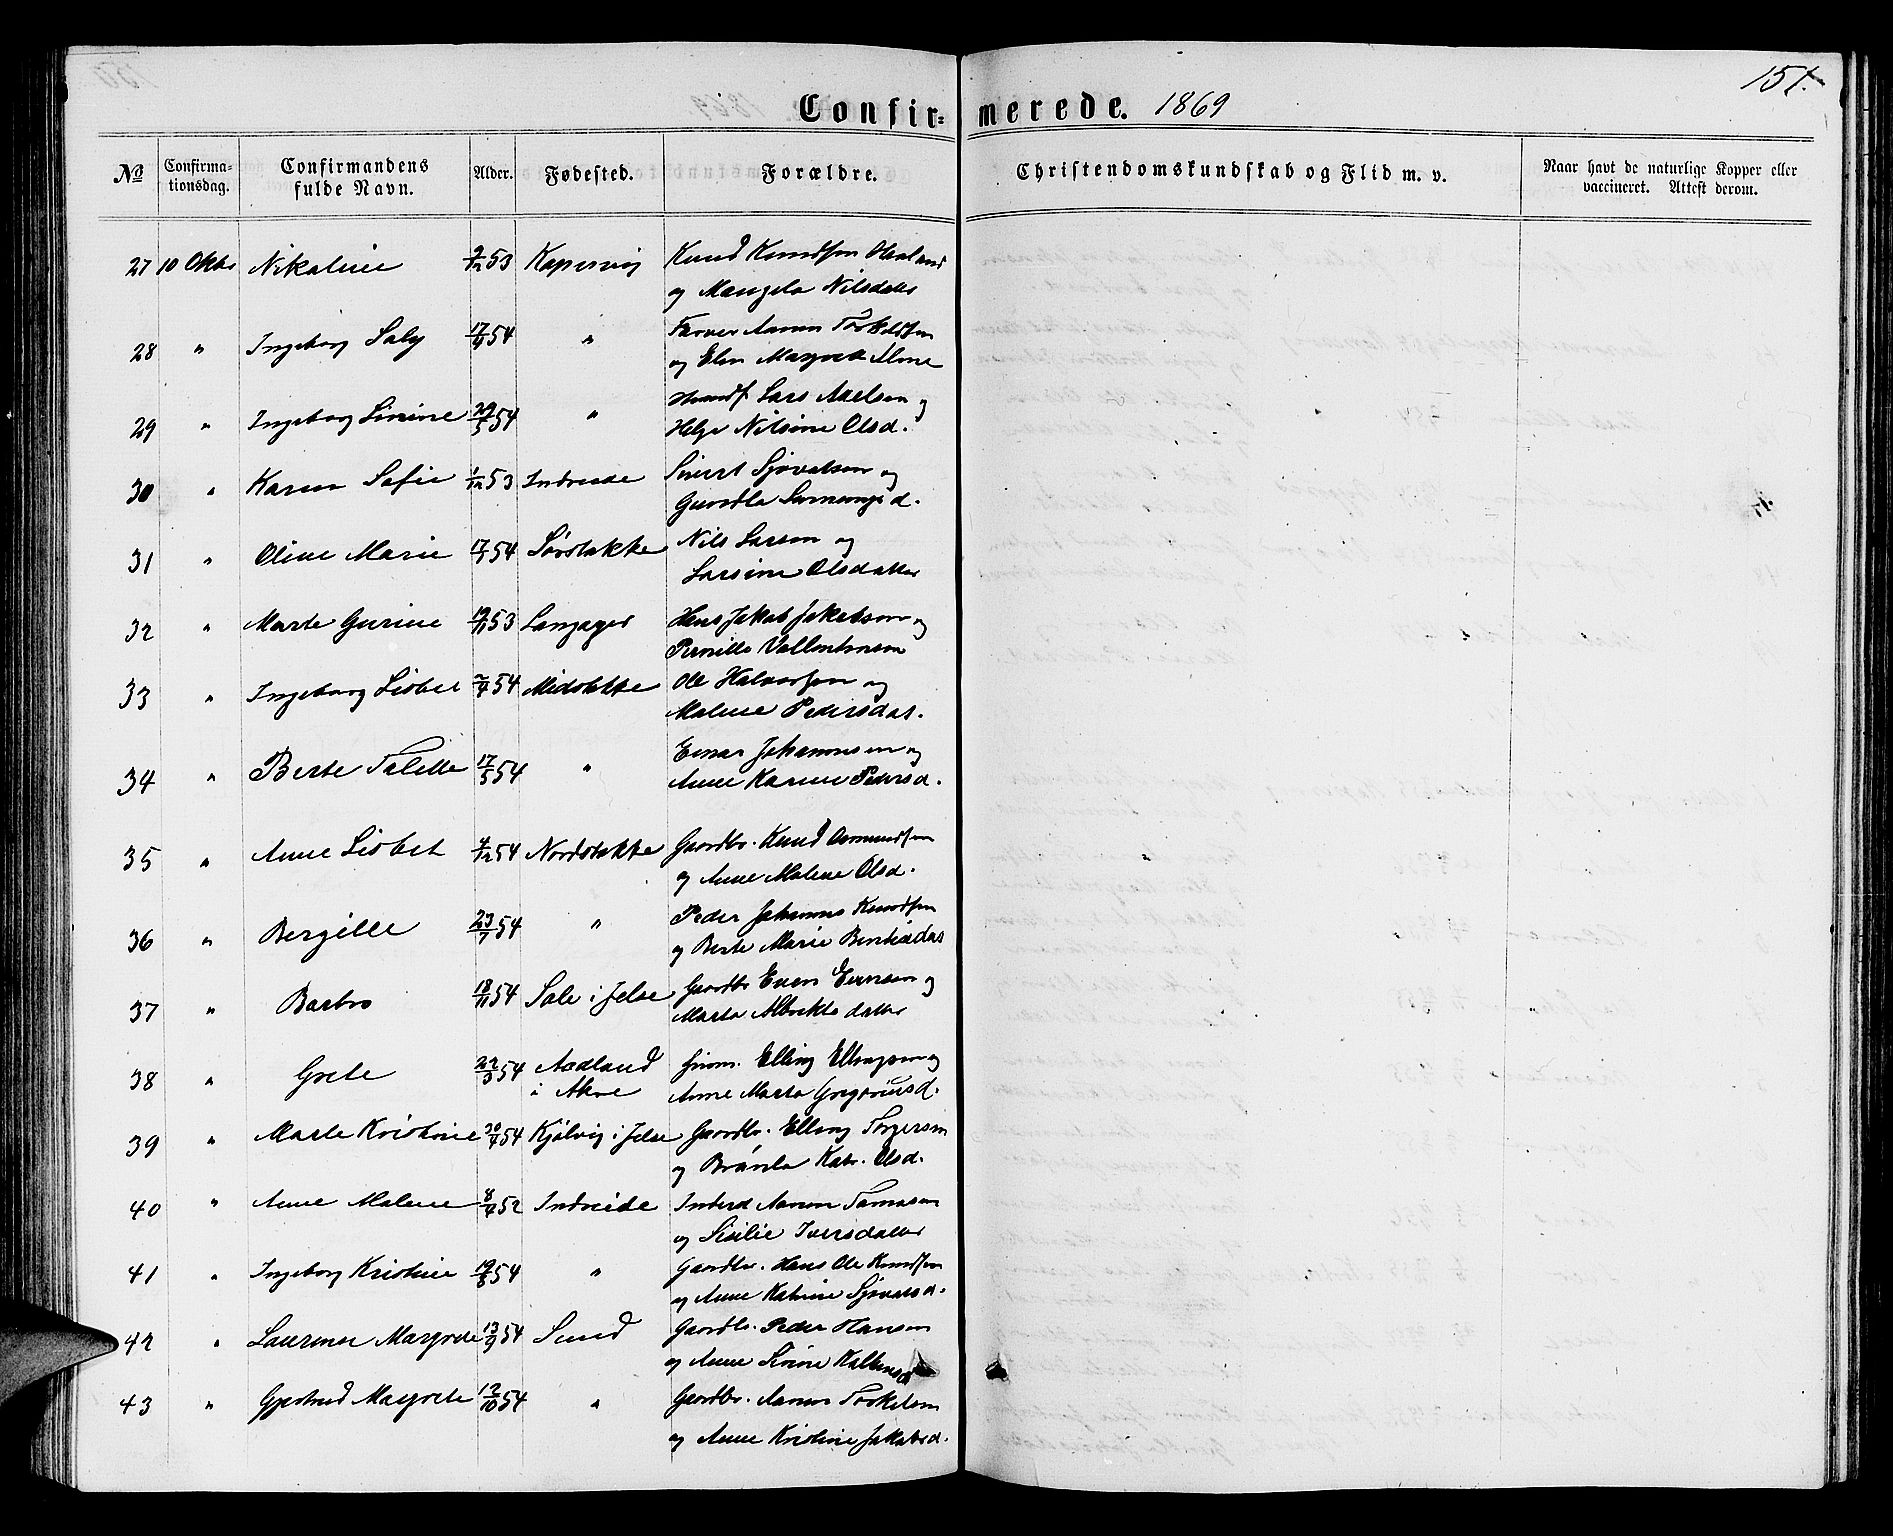 151.
Confir= merede. 1869
No Confirma-tionsdag. Confirmandens fulde Navn. Alder. Fødested. Forældre. Christendomskundskab og Flid m. v. Naar havt de naturlige Kopper eller vaccineret. Attest derom.
27 10 Oktbr Nikoline 9/12 53 Kopervig Knud Knudsen Haaland
og Mangela Nilsdatter
28 " Ingeborg Saly 17/9 54 " Farver Aamun Torkildsen
og Elen Margrete
29 " Ingeborg Sirine 29/5 54 " Handf. Lars Axelsen og
Helge Nilsine Olsd.
30 " Karen Sofie 1/12 53 Indreide Sivert Sjovatsen og
Guroella d.
31 " Oline Marie 17/1 54 Sørstokke Nils Larsen og
Larsine Olsdatter
32 " Marte Gurine 19/11 53 Langager Hans Jakob Jakobsen og
Pernille
33 " Ingeborg Lisbet 54 Midstokke Ole Halvorsen og
Malene Pedersdat.
34 " Berte Talette 17/5 54 " Einar Johannesen og
Anne Karine Pedersd.
35 " Anne Lisbet 4/12 54 Nordstokke Gaardbr. Knud Osmundsen
og Anne Malene Olsd.
36 " Bergitte 23/7 54 " Peder Johannes Knudsen
og Berte Marie
37 " Barbro 18/11 54 Sale i Jelse Gaardbr Even Evensen og
Marta Albrektsdatter
38 " Grete 22/3 54 Aadland Elling Ellingsen og
i Akre Anne Marta Gregoriusd.
39 " Marte Kristine 30/4 54 Kjølvig i Jelse Gaardbr. Elling Torgersen
og Brønla Katr. Olsd.
40 " Anne Malene 8/4 52 Indreide Inderst Aamun Tomasen
og Sisilie Iversdatter
41 " Ingeborg Kristine 19/8 54 " Gaardbr. Hans Ole Knudsen
og Anne Katrine Sjovatsd.
42 " Laurense Margrete 13/9 54 Sund Gaardbr. Peder Hansen
og Anne Sirine
43 " Gjertrud Margrete 12/10 54 " Gaardbr. Aamun Torkelsen
og Anne Kristine Jakobsd.